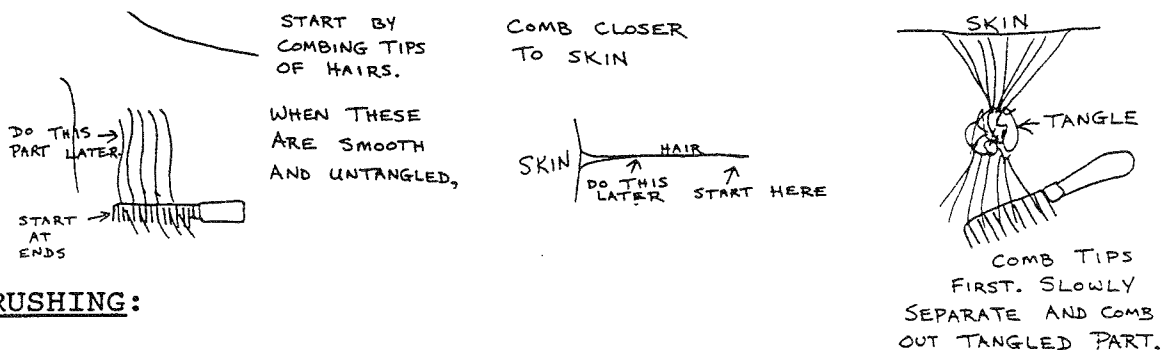 START BY
COMBING TIPS
OF HAIRS.
WHEN THESE
ARE SMOOTH
AND UNTANGLED,
DO THIS
PART LATER.
START
AT
ENDS
COMB CLOSER
TO SKIN
SKIN
HAIR
DO THIS
LATER
START HERE
SKIN
TANGLE
COMB TIPS
FIRST. SLOWLY
SEPARATE AND COMB
OUT TANGLED PART.
RUSHING: